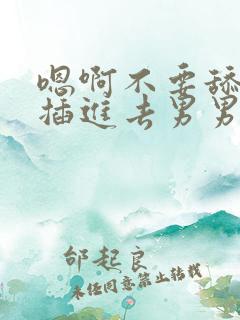 嗯啊不要舔
插进去男男
邰起良
未经同意禁止转载